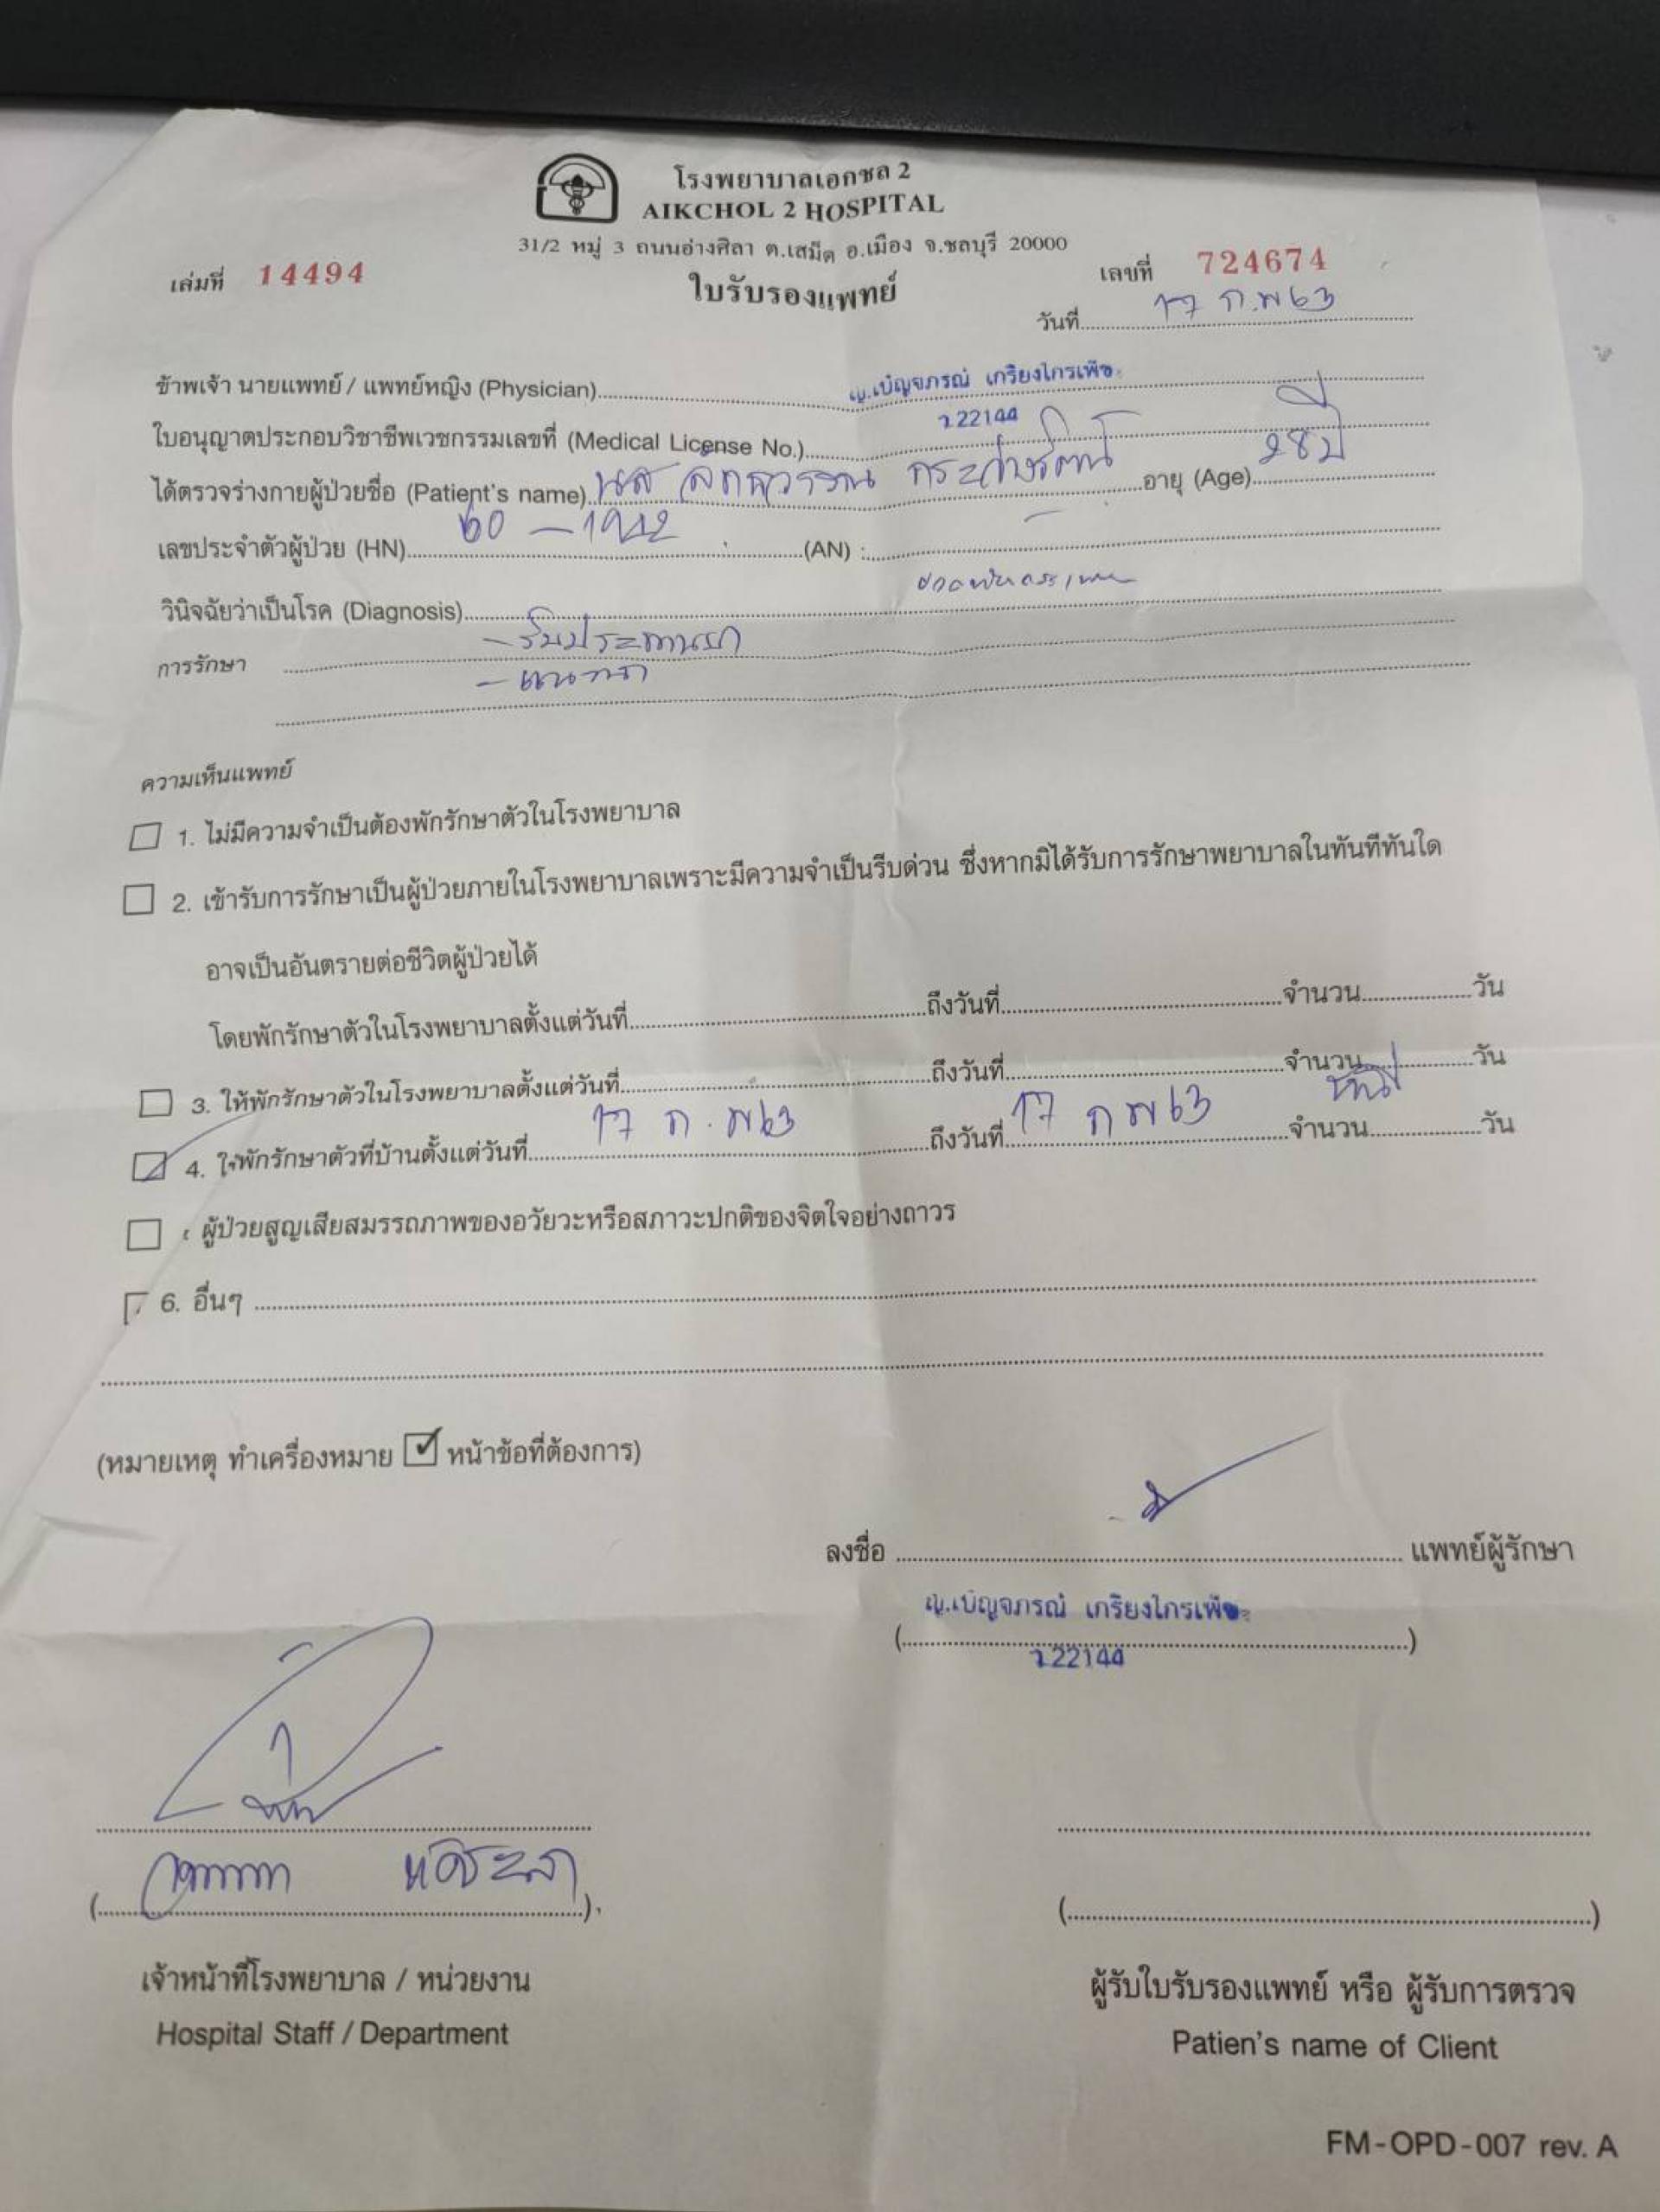 โรงพยาบาลเอกชล 2
AIKCHOL 2 HOSPITAL
31/2 หมู่ 3 ถนนอ่างศิลา ต.เสม็ด อ.เมือง จ.ชลบุรี 20000
เล่มที่ 14494 เลขที่ 724674
ใบรับรองแพทย์
วันที่ 17 ก.พ 63
ข้าพเจ้า นายแพทย์ / แพทย์หญิง (Physician) ญ.เบ็ญจภรณ์ เกรียงไกรเพ็ชร
ใบอนุญาตประกอบวิชาชีพเวชกรรมเลขที่ (Medical License No.) ว.22144
ได้ตรวจร่างกายผู้ป่วยชื่อ (Patient's name) นส อายุ (Age) 28 ปี
เลขประจำตัวผู้ป่วย (HN) 60 - (AN) : -
วินิจฉัยว่าเป็นโรค (Diagnosis)
การรักษา - รับประทานยา
-
ความเห็นแพทย์
1. ไม่มีความจำเป็นต้องพักรักษาตัวในโรงพยาบาล
2. เข้ารับการรักษาเป็นผู้ป่วยภายในโรงพยาบาลเพราะมีความจำเป็นรีบด่วน ซึ่งหากมิได้รับการรักษาพยาบาลในทันทีทันใด
อาจเป็นอันตรายต่อชีวิตผู้ป่วยได้
โดยพักรักษาตัวในโรงพยาบาลตั้งแต่วันที่ ถึงวันที่ จำนวน วัน
3. ให้พักรักษาตัวในโรงพยาบาลตั้งแต่วันที่ ถึงวันที่ จำนวน วัน
4. ให้พักรักษาตัวที่บ้านตั้งแต่วันที่ 17 ก.พ 63 ถึงวันที่ 17 ก พ 63 จำนวน วัน
ผู้ป่วยสูญเสียสมรรถภาพของอวัยวะหรือสภาวะปกติของจิตใจอย่างถาวร
6. อื่นๆ
(หมายเหตุ ทำเครื่องหมาย ☑ หน้าข้อที่ต้องการ)
ลงชื่อ แพทย์ผู้รักษา
ญ.เบ็ญจภรณ์ เกรียงไกรเพ็ชร
( )
ว.22144
( ) ( )
เจ้าหน้าที่โรงพยาบาล / หน่วยงาน ผู้รับใบรับรองแพทย์ หรือ ผู้รับการตรวจ
Hospital Staff / Department Patien's name of Client
FM-OPD-007 rev. A